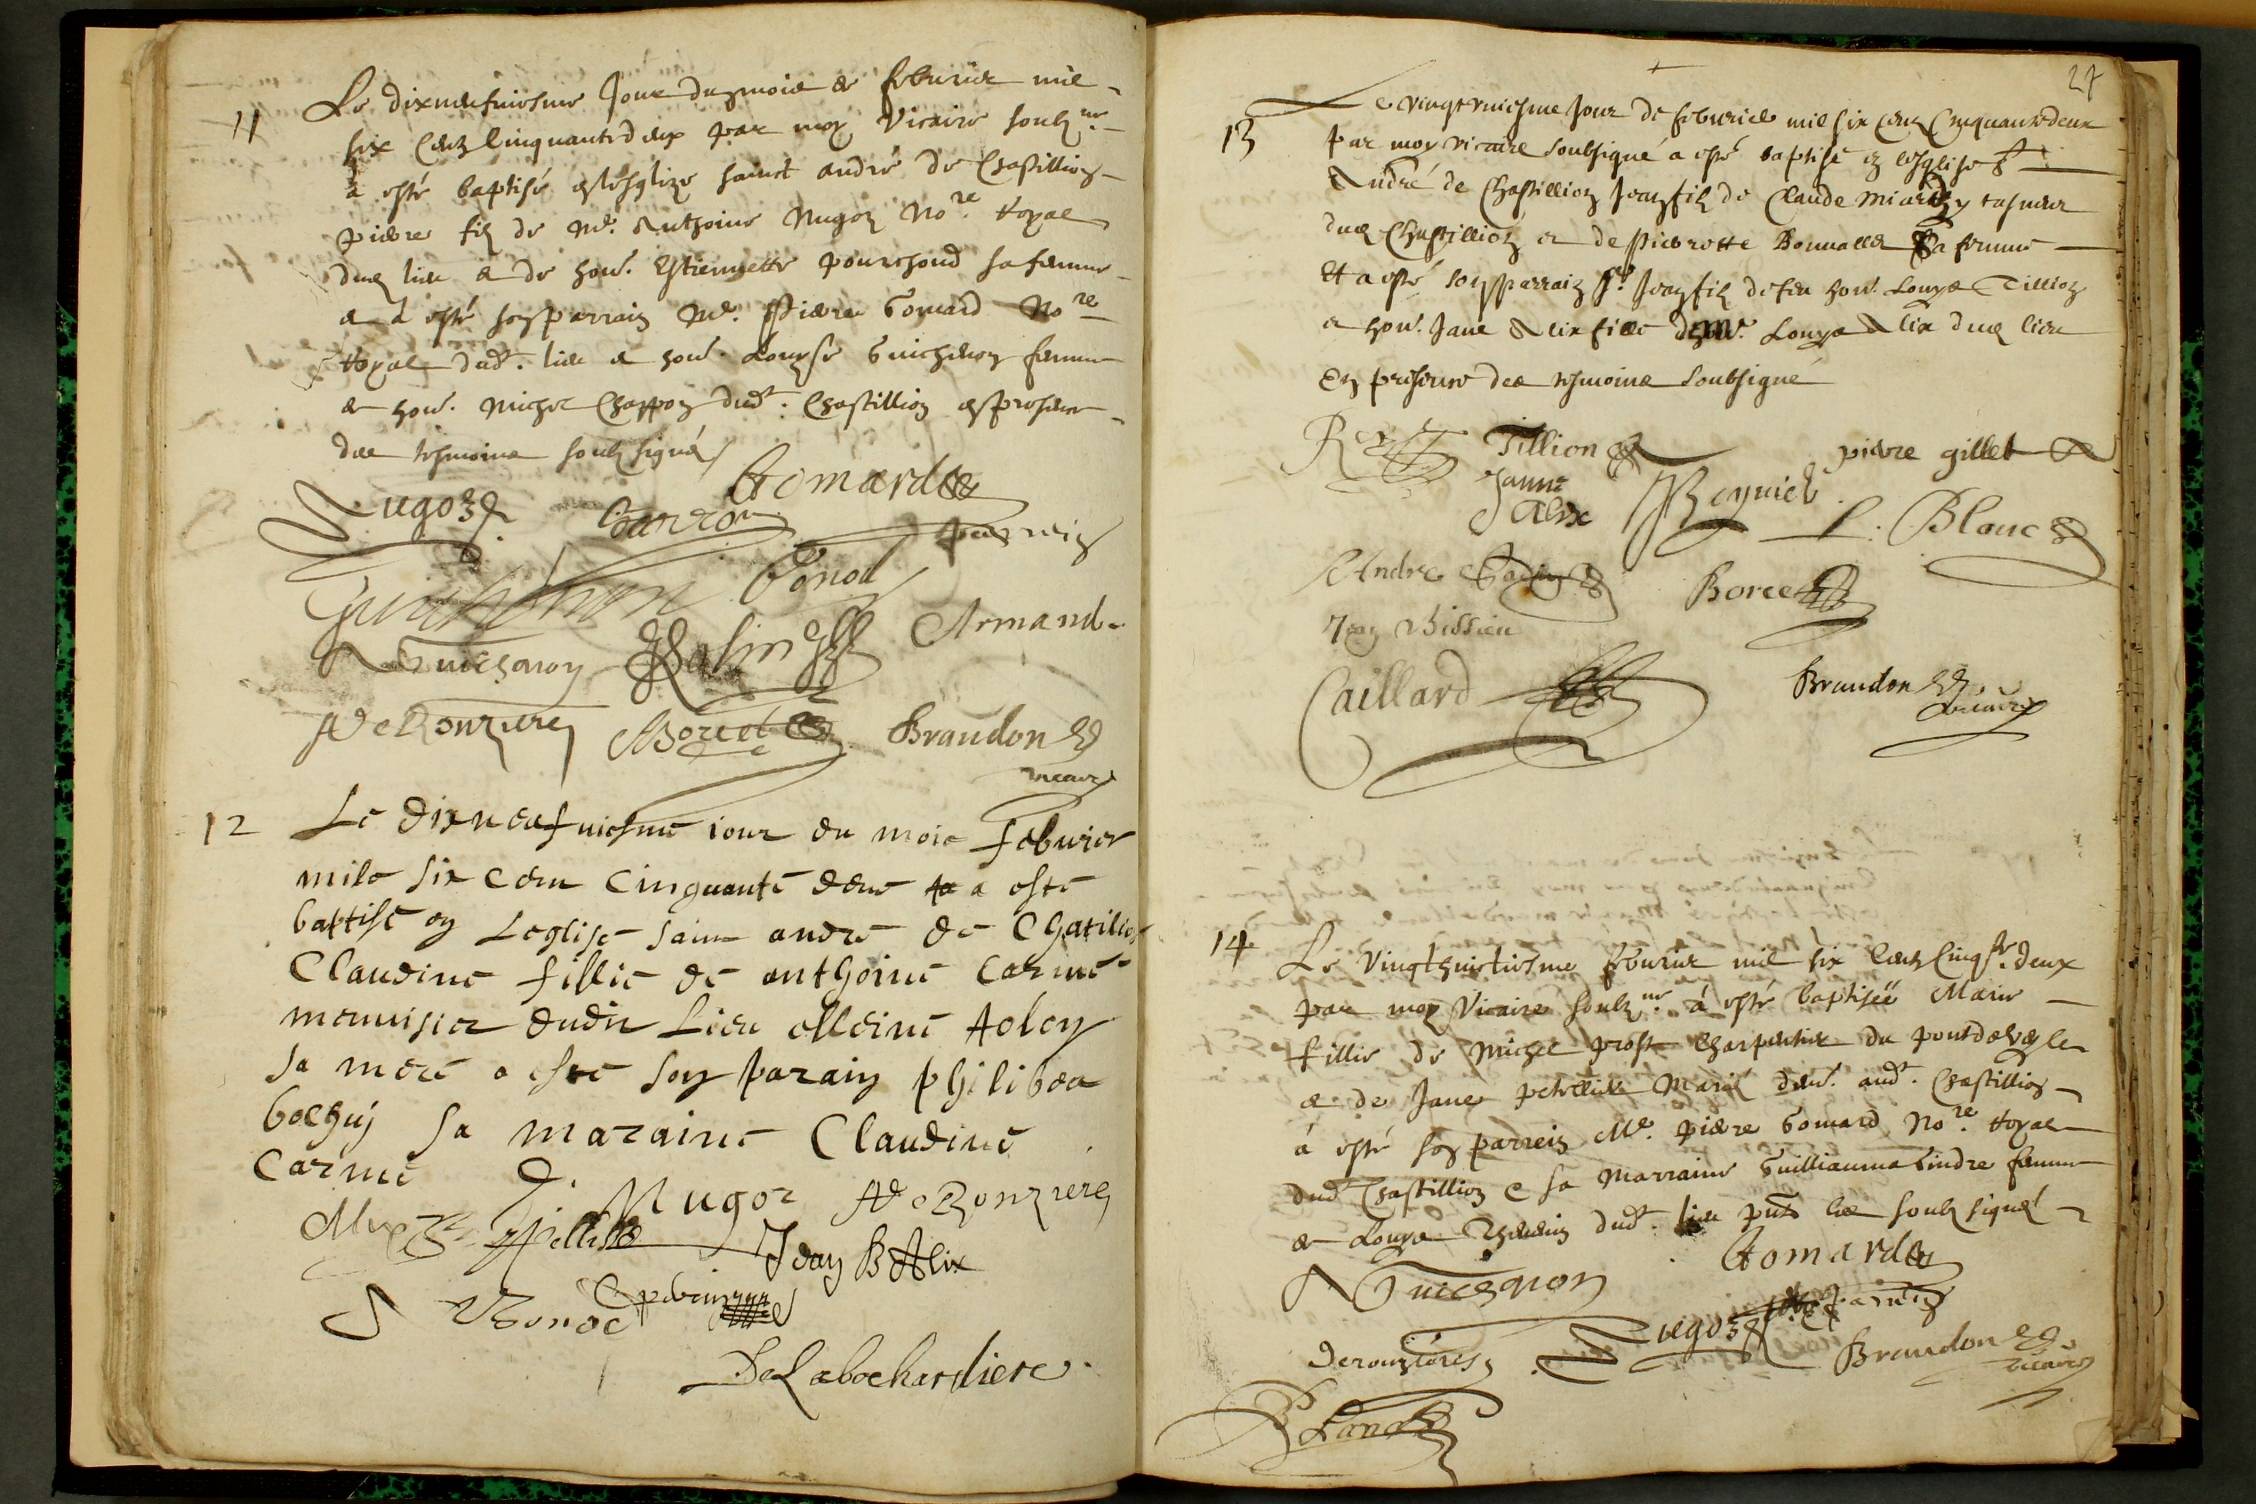 11
Le dixneufuiesme Jour du mois de febvrier mil
six Centz Cinquantedeux par moy Vicaire soubz.né
a esté baptisé en lesglize sainct andré de Chastillion
pierre filz de Me. Anthoine Nugoz No.re Royal
dud lieu & de hon. Estiennette pourchoud sa femme
& á esté son parrain Me. Pierre Gomard No.re
Royal dud. lieu & hon. Louyse Guichenon femme
de hon. Michel Chappon dud. Chastillion en presence
des tesmoins soubzsignés
Nugoz
Garron
Gomard
parrein
Guichenon
Bonod
Guichenon
Armand
ADeRonzieres
Borcet
Brandon
vicaire
12
Le dixneufuiesme iour du mois febvrier
mile six cens Cinquante deus a esté
baptise en Leglise saint andre de Chatilion
Claudine fillie de anthoine Carme
menuisier dudit Lieu
sa mere a este son parain philibea
sa maraine Claudine
Carme
Nugoz
ADeRonzieres
Jean B Alix
Bonod
DeLabochardiere
27
13
Le vingtuniesme Jour de febvrier mil six Centz Cinquante deux
par moy vicaire soubsigné a esté baptisé en lesglise St
André de Chastillion Jean filz de Claude
dud Chastillion et de Pierrotte sa femme
Et a esté son parrain Sr. Jean filz de feu hon. Louys Tillion
et hon. Jane Alix fille de Me. Louys Alix dud lieu
En presence des tesmoins soubsigné
Tillion
pierre gillet
Janne
Alix
Reynier
P. Blanc
Andre
Borcet
Jean
Caillard
Brandon
vicaire
14
Le Vingthuictiesme febvrier mil six Centz Cinqte. deux
par moy Vicaire soubz.né á esté baptiséë Marie
fillie de Michel prost Charpentier du pontdevesle
& de Jane Mariés dem. aud. Chastillion
á esté son parrein Me. pierre Gomard No.re Royal
dud Chastillion & sa Marraine Guilliauma Gindre femme
de Louys dud. lieu pnts les soubzsignés
Guichenon
Gomard
parrein
Nugoz
Deronzieres
Brandon
vicaire
Blanc